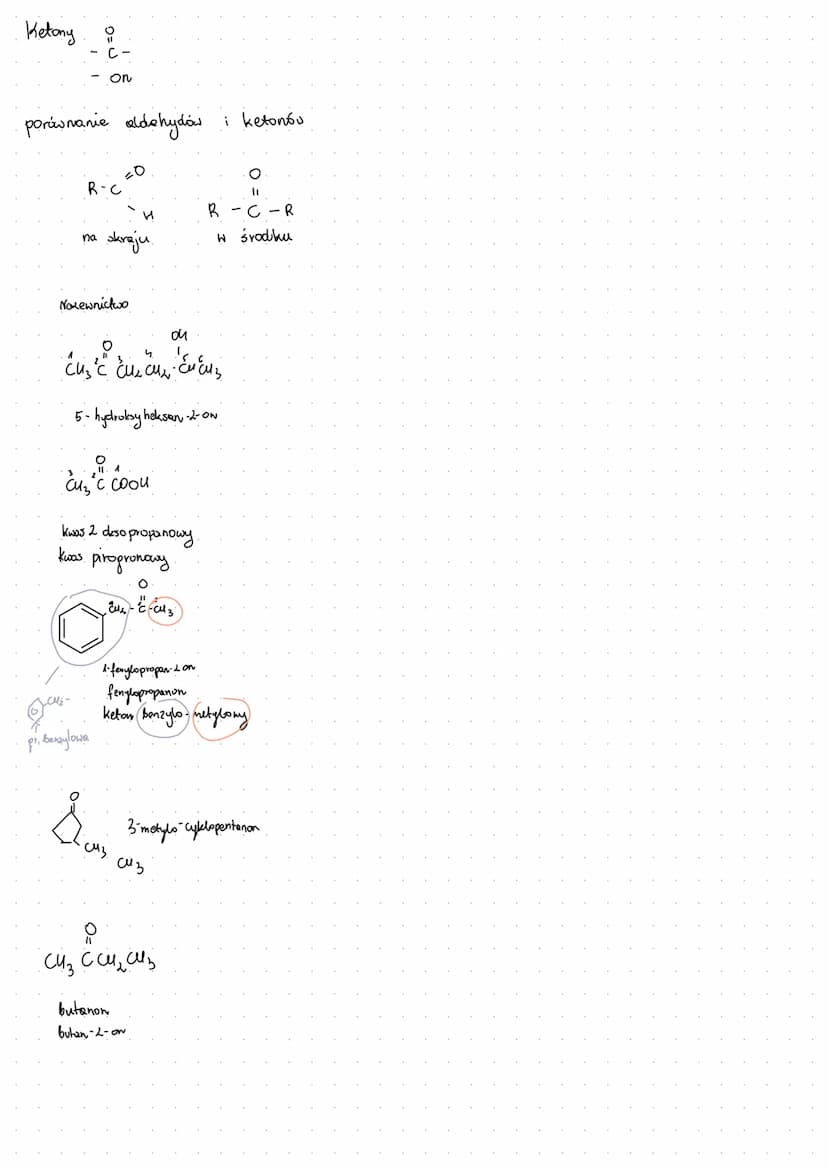 Ketony
O
||
- C -
- on
porównanie aldehydów i ketonów
R-C =O
\ H
na skraju
O
||
R - C - R
w środku
Nazewnictwo
O OH
1 2 || 3 4 | 5 6
CH3 C CH2 CH2 - CH CH3
5-hydroksyheksan-2-on
O
3 2 || 1
CH3 C COOH
kwas 2 oksopropanowy
kwas pirogronowy
O
||
CH2 - C - CH3
1-fenylopropan-2 on
fenylopropanon
keton benzylo-metylowy
CH2-
gr. benzylowa
O
CH3
CH3
3-metylo-cyklopentanon
O
||
CH3 C CH2 CH3
butanon
butan-2-on